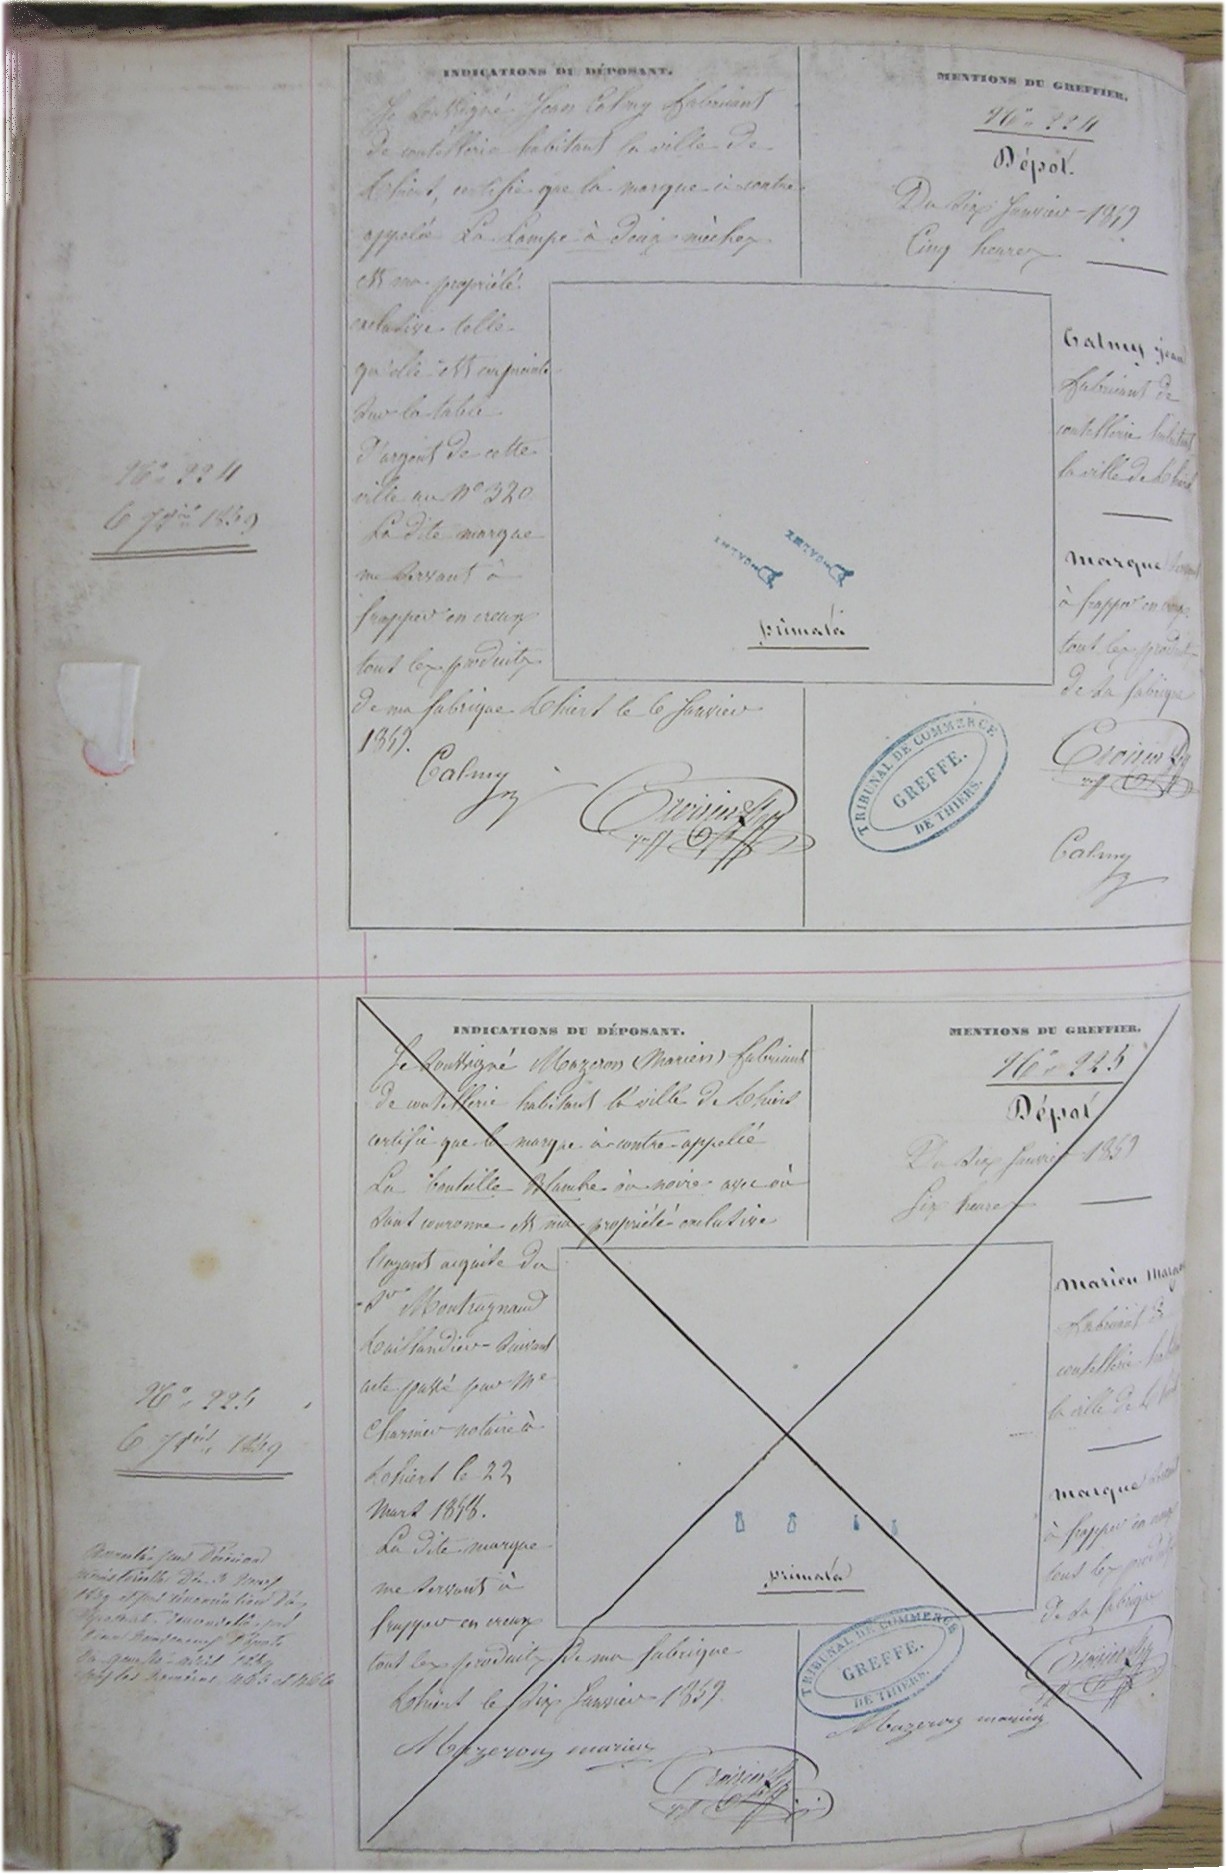 INDICATIONS DU DÉPOSANT.
Je soussigné Jean Calmy fabricant
de coutellerie habitant la ville de
Thiers, certifie que la marque ci contre
appelée La Lampe à deux mèches
est ma propriété
exclusive telle
qu'elle est empreinte
sur la table
d'argent de cette
ville au No 320
La dite marque
me servant à
frapper en creux
tout les produits
de ma fabrique Thiers le 6 Janvier
1859.
Calmy
MENTIONS DU GREFFIER.
No 224
Dépot.
Du Six Janvier 1859
Cinq heures
Calmy Jean
fabricant de
coutellerie habitant
la ville de Thiers
Marque servant
à frapper en creux
tout les produits
de sa fabrique
Calmy
CALMY
CALMY
primata
TRIBUNAL DE COMMERCE
GREFFE.
DE THIERS.
No 224
6 Jer 1859
INDICATIONS DU DÉPOSANT.
Je soussigné Mazeron (Marien) fabricant
de coutellerie habitant la ville de Thiers
certifie que la marque ci contre appelée
La bouteille blanche ou noire avec ou
sans couronne est ma propriété exclusive
l'ayant acquise du
Sr
Taillandier suivant
acte passé par Me
notaire à
Thiers le 22
Mars 1858.
La dite marque
me servant à
frapper en creux
tout les produits de ma fabrique
Thiers le six Janvier 1859.
Mazeron marien
MENTIONS DU GREFFIER.
No 225
Dépot
Du Six Janvier 1859
Six heures
Marien Mazeron
fabricant de
coutellerie habitant
la ville de Thiers
Marque servant
à frapper en creux
tous les produits
de sa fabrique
Mazeron marien
primata
TRIBUNAL DE COMMERCE
GREFFE.
DE THIERS.
No 225
6 Jer 1859